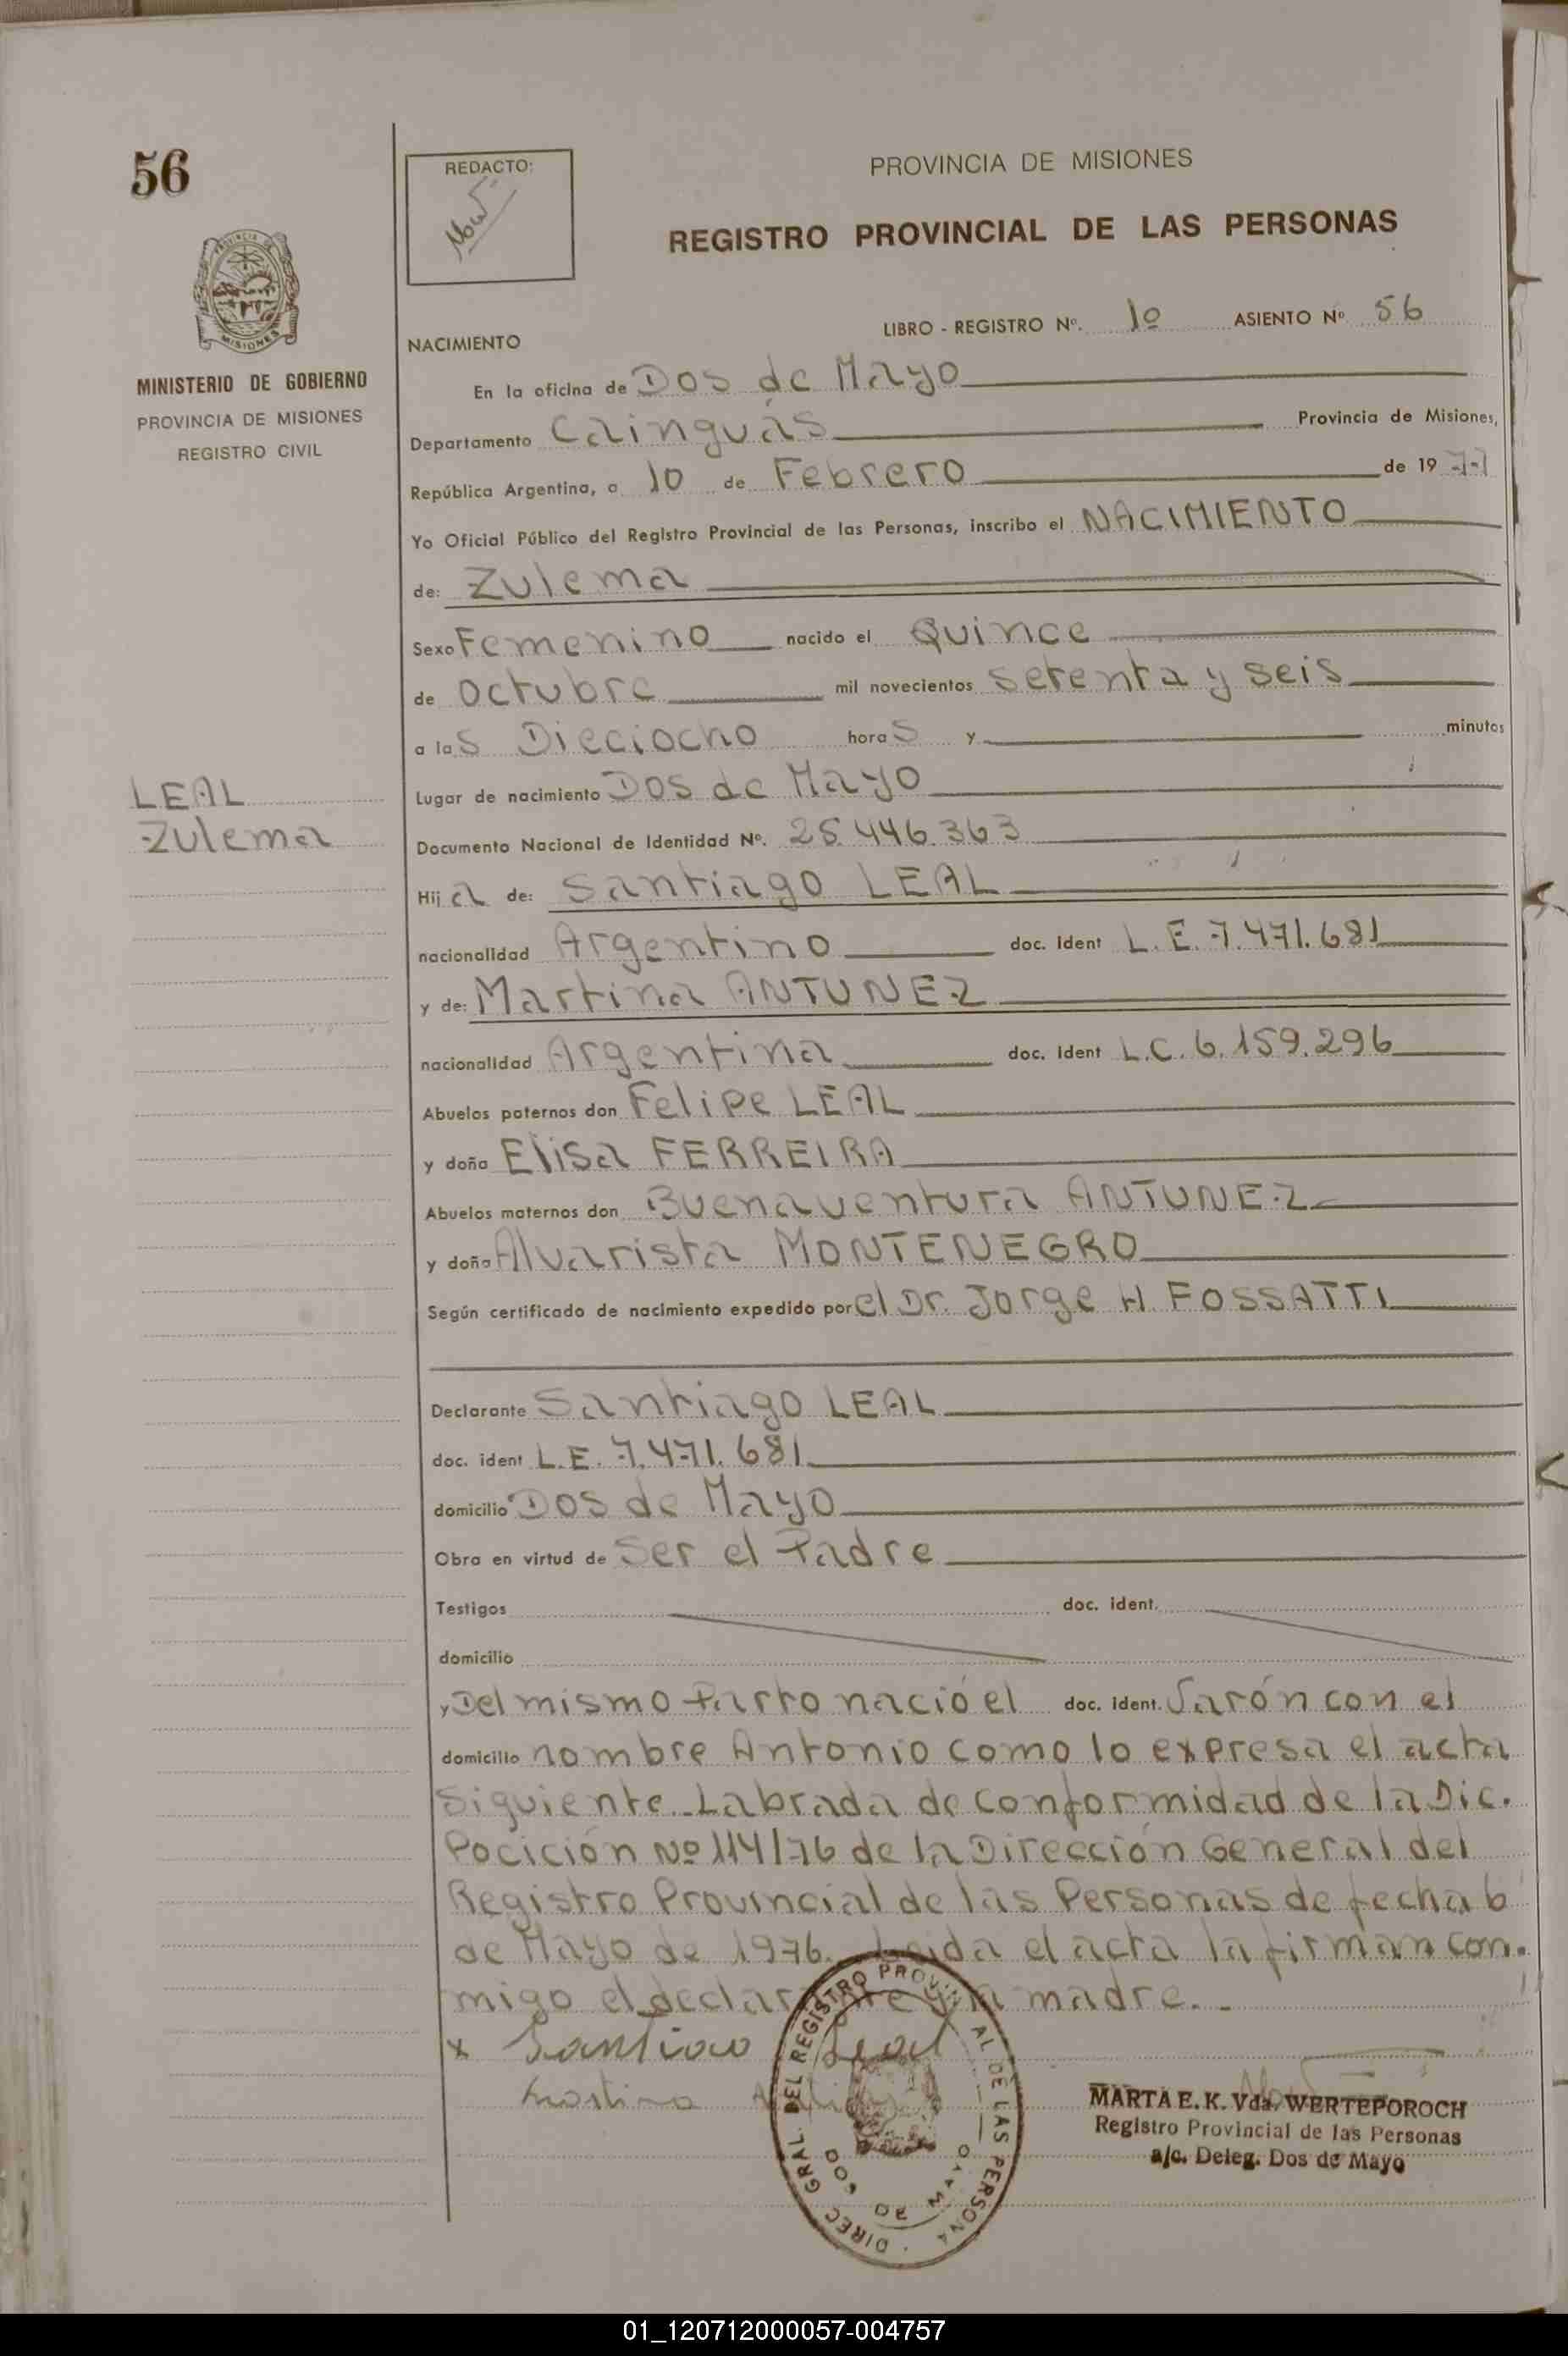 56
REDACTO:
PROVINCIA DE MISIONES
REGISTRO PROVINCIAL DE LAS PERSONAS
PROVINCIA DE
MISIONES
MINISTERIO DE GOBIERNO
PROVINCIA DE MISIONES
REGISTRO CIVIL
LIBRO - REGISTRO Nº. 1º ASIENTO Nº 56
NACIMIENTO
En la oficina de Dos de Mayo
Departamento Cainguás Provincia de Misiones,
República Argentina, a 10 de Febrero de 1977
Yo Oficial Público del Registro Provincial de las Personas, inscribo el NACIMIENTO
de: Zulema
Sexo Femenino nacido el Quince
de Octubre mil novecientos setenta y seis
a las Dieciocho horas y minutos
LEAL
Zulema
Lugar de nacimiento Dos de Mayo
Documento Nacional de Identidad Nº. 25.446.363
Hija de: Santiago LEAL
nacionalidad Argentino doc. ident L.E. 7.471.681
y de: Martina ANTUNEZ
nacionalidad Argentina doc. ident L.C. 6.159.296
Abuelos paternos don Felipe LEAL
y doña Elisa FERREIRA
Abuelos maternos don Buenaventura ANTUNEZ
y doña Alvarista MONTENEGRO
Según certificado de nacimiento expedido por el Dr. Jorge H. FOSSATTI
Declarante Santiago LEAL
doc. ident L.E. 7.471.681
domicilio Dos de Mayo
Obra en virtud de Ser el Padre
Testigos doc. ident.
domicilio
y Del mismo Parto nació el doc. ident. Varón con el
domicilio nombre Antonio como lo expresa el acta
Siguiente. Labrada de conformidad de la Dic.
Pocición Nº 114/76 de la Dirección General del
Registro Provincial de las Personas de fecha 6
de Mayo de 1976. Leida el acta la firman con.
migo el declarante y la madre..
x Santiago Leal
MARTA E. K. Vda. WERTEPOROCH
Registro Provincial de las Personas
a/c. Deleg. Dos de Mayo
DIREC GRAL. DEL REGISTRO PROVINCIAL DE LAS PERSONA
DOS DE MAYO
01_120712000057-004757